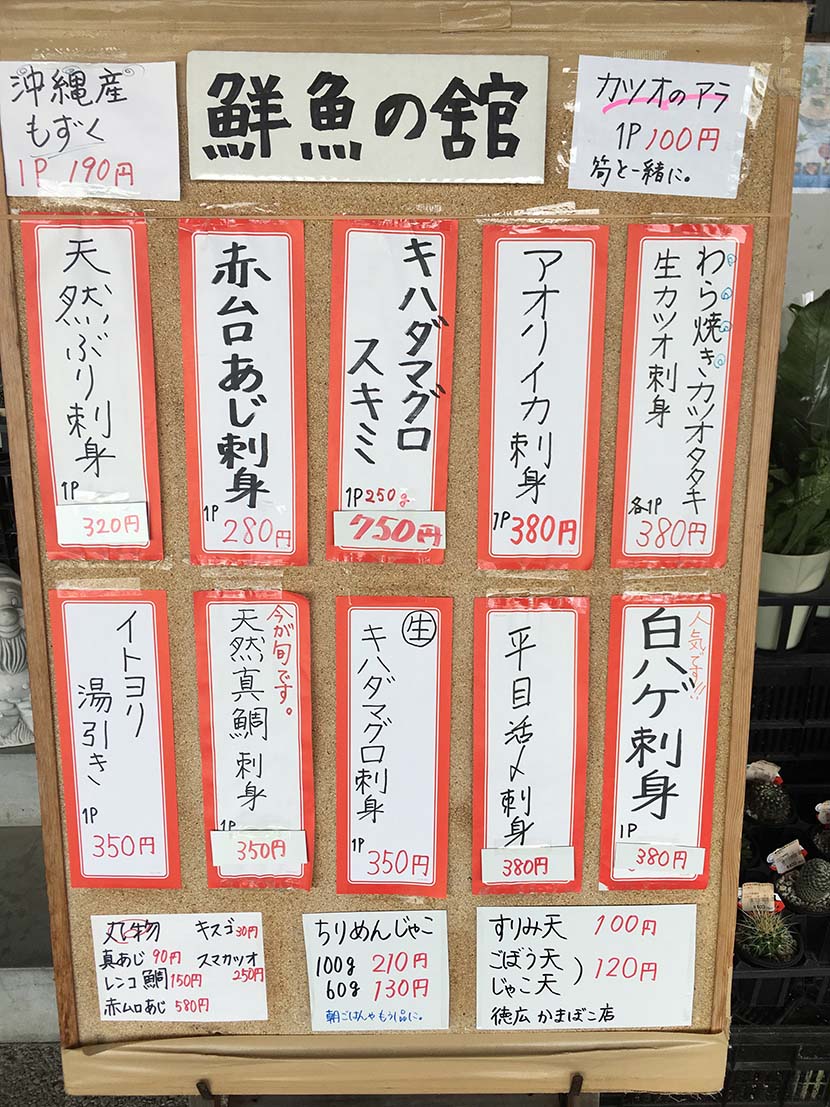 鮮魚の舘
沖縄産
もずく
1P 190円
カツオのアラ
1P 100円
筍と一緒に。
わら焼きカツオタタキ
生カツオ刺身
各1P
380円
アオリイカ刺身
1P 380円
キハダマグロ
スキミ
1P 250g
750円
赤ムロあじ刺身
1P
280円
天然ぶり刺身
1P
320円
人気です!!
白ハゲ刺身
1P
380円
平目活〆刺身
380円
生
キハダマグロ刺身
1P
350円
今が旬です。
天然真鯛刺身
1P
350円
イトヨリ
湯引き
1P
350円
丸物
キスゴ 30円
真あじ 90円
スマカツオ
250円
レンコ鯛 150円
赤ムロあじ 580円
ちりめんじゃこ
100g 210円
60g 130円
朝ごはんやもう1品に。
すりみ天 100円
ごぼう天
じゃこ天 ) 120円
徳広かまぼこ店